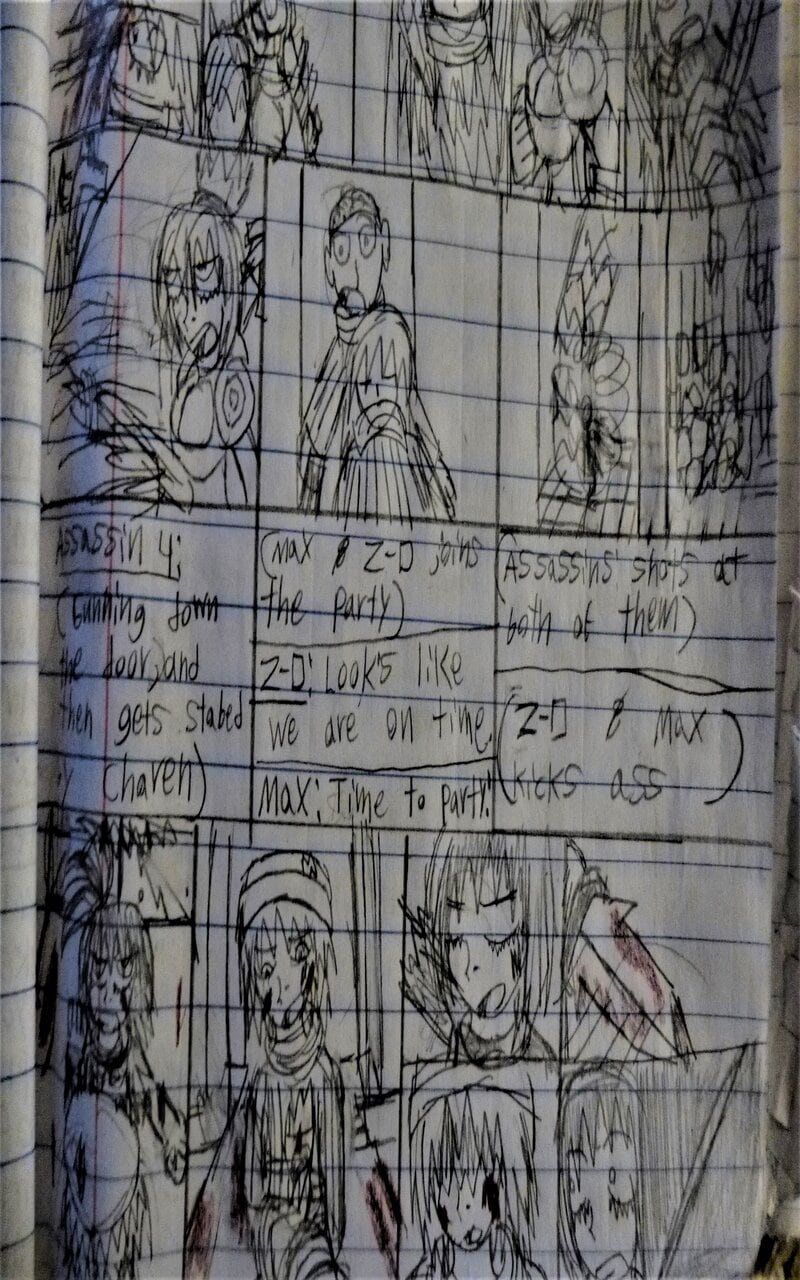 Assassin 4:
(Gunning down
the door, and
then gets stabed
by Chaven)
(Max & Z-D joins
the party)
Z-D: Look's like
we are on time.
Max: Time to party!
(Assassins shots at
both of them)
(Z-D & Max
kicks ass)